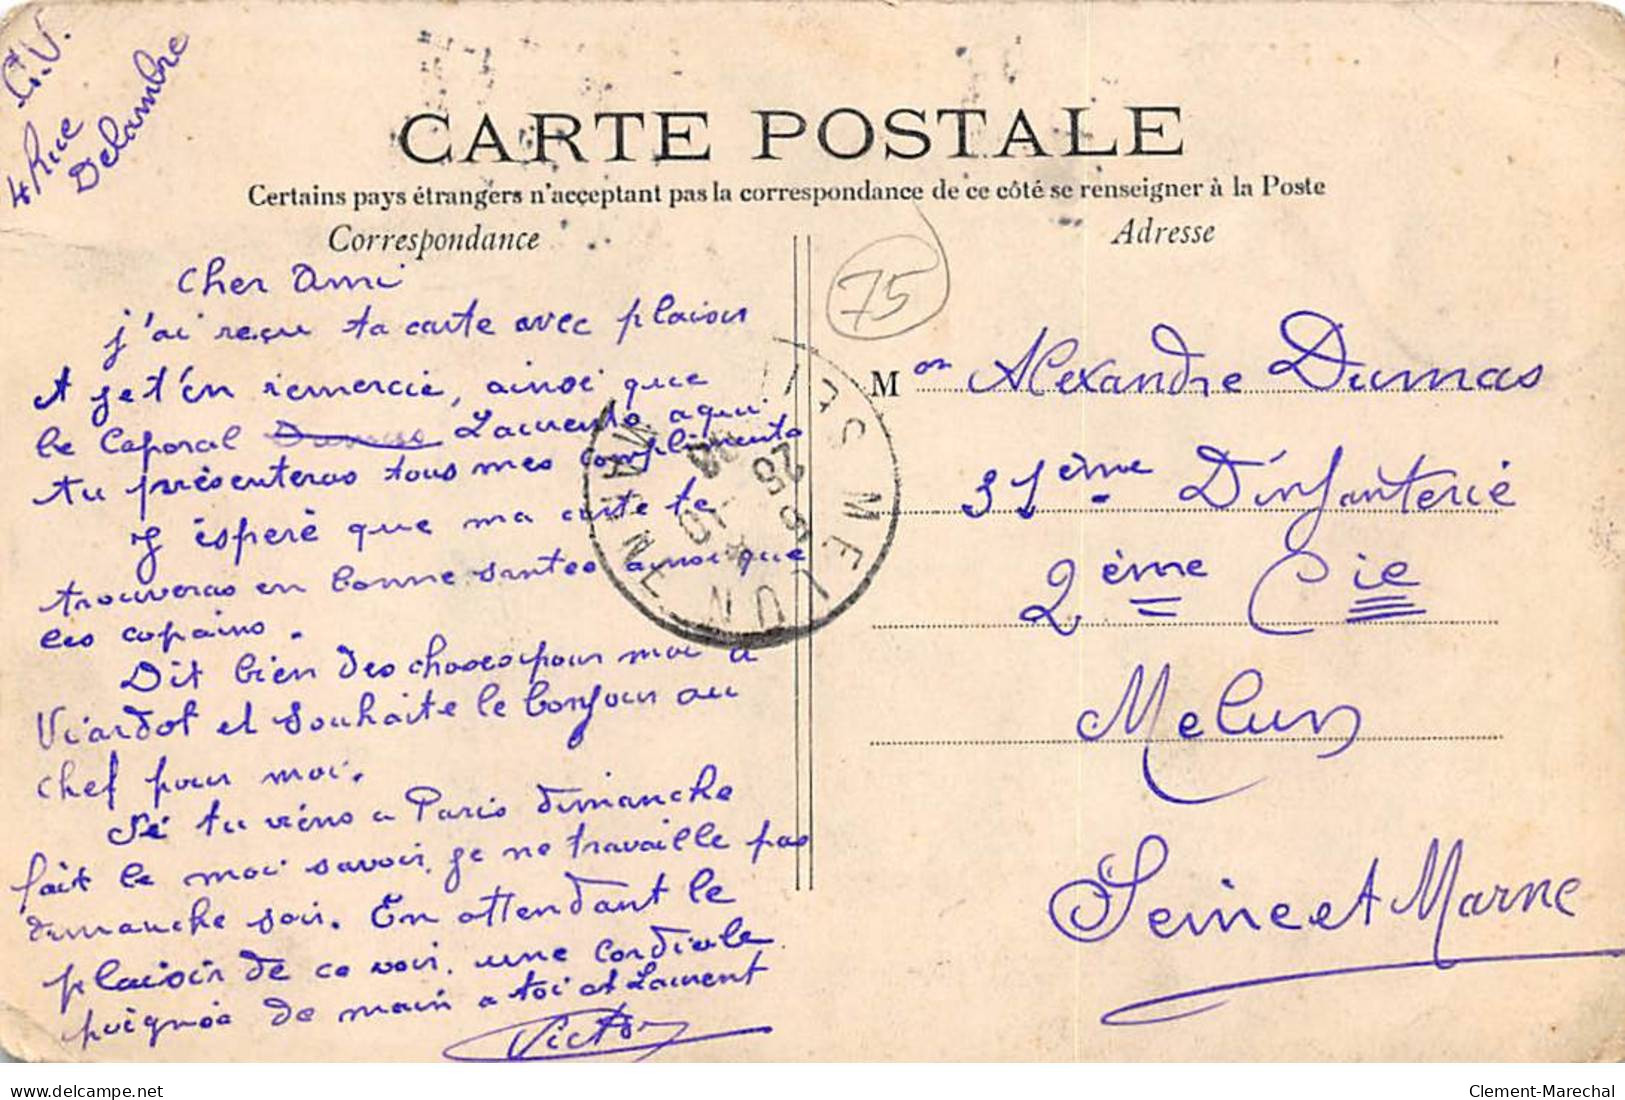 C.V.
4 Rue
Delambre
CARTE POSTALE
Certains pays étrangers n'acceptant pas la correspondance de ce côté se renseigner à la Poste
Correspondance
Adresse
75
Cher Ami
j'ai reçu ta carte avec plaisir
et je t'en remercie, ainsi que
le Caporal Dumas Laurent a qui
tu présenteras tous mes compliments
J'éspère que ma carte te
trouveras en bonne santée ainsi que
les copains.
Dit bien des choses pour moi a
Viardot et souhaite le bonjour au
chef pour moi.
Si tu viens a Paris dimanche
fait le moi savoir, je ne travaille pas
dimanche soir. En attendant le
plaisir de ce voir, une cordiale
poignée de main a toi et Laurent
Victor
Mon Alexandre Dumas
31ème D'infanterie
2ème Cie
Melun
Seine et Marne
MELUN
MARNE
25
delcampe.net
Clement-Marechal